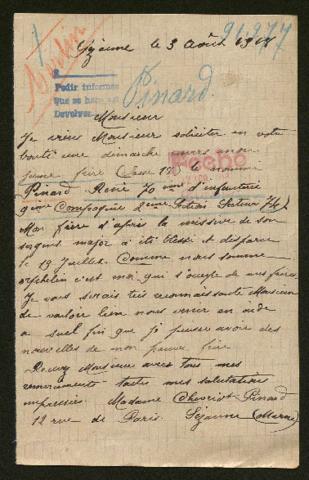 91277
Sézanne le 3 Août 1917
Pedir informes
que se ha
Devolver
Pinard.
Monsieur
Je viens Monsieur solliciter en votre
bonté une démarche envers mon
jeune frère (Classe 17) le nommé
Fecho
Pinard René 70 ème d'infanterie
9ème Compagnie 2ème Section Secteur 74)
Mon frère d'après la missive de son
sergent major a été blessé et disparu
le 19 Juillet. Comme nous sommes
orphelins c'est moi qui s'occupe de ses affaires.
Je vous serais très reconnaissante Monsieur
de vouloir bien nous venir en aide
a seul fin que je puisse avoir des
nouvelles de mon pauvre frère
Recevez Monsieur avec tous mes
remerciements toutes mes salutations
empressées. Madame Chevriot-Pinard
12 rue de Paris Sézanne (Marne)